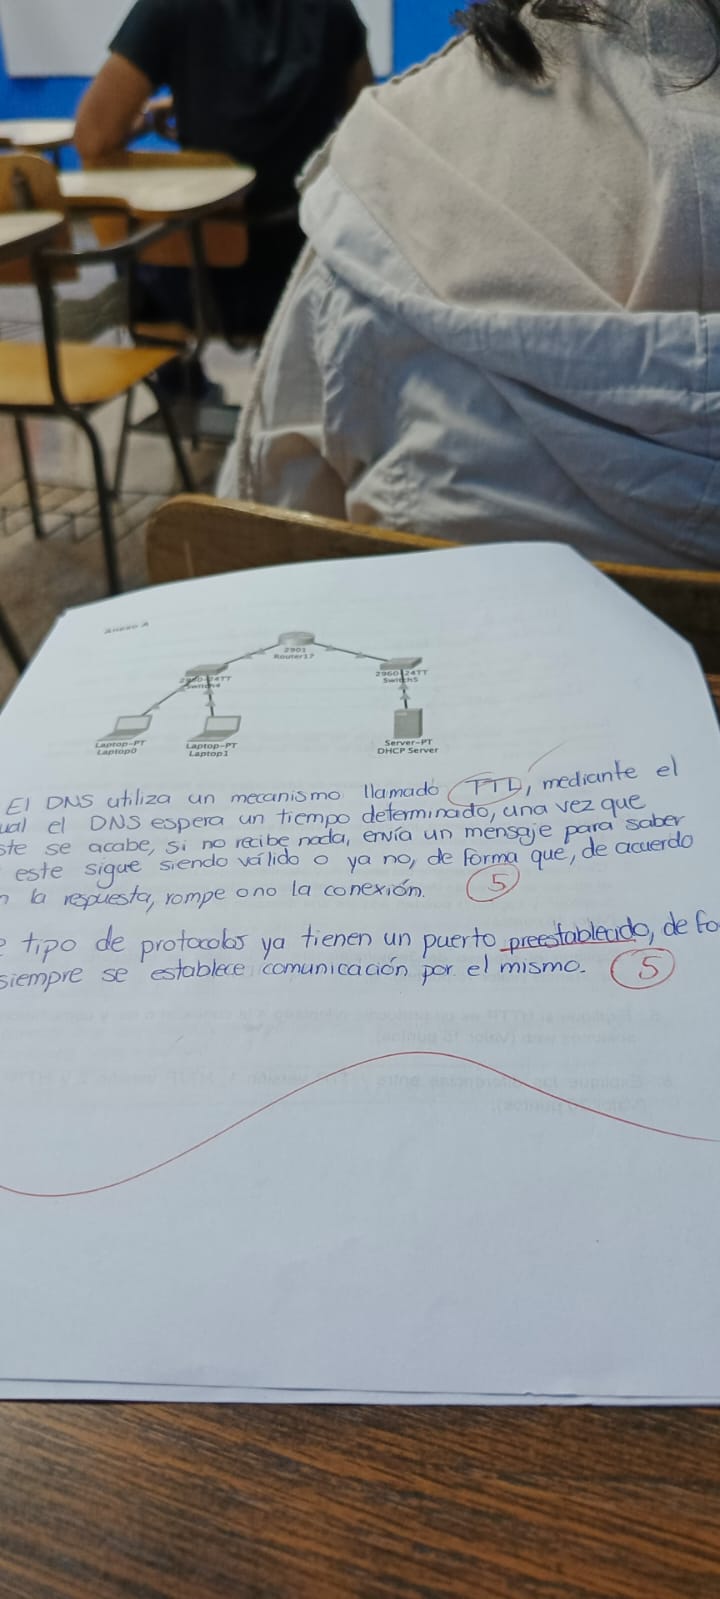 Anexo A
2901
Router17
2960-24TT
Switch4
2960-24TT
Switch5
Laptop-PT
Laptop0
Laptop-PT
Laptop1
Server-PT
DHCP Server
El DNS utiliza un mecanismo llamado TTL, mediante el
ual el DNS espera un tiempo determinado, una vez que
ste se acabe, si no recibe nada, envía un mensaje para saber
este sigue siendo válido o ya no, de forma que, de acuerdo
n la respuesta, rompe o no la conexión. 5
e tipo de protocolos ya tienen un puerto preestablecido, de fo
siempre se establece comunicación por el mismo. 5